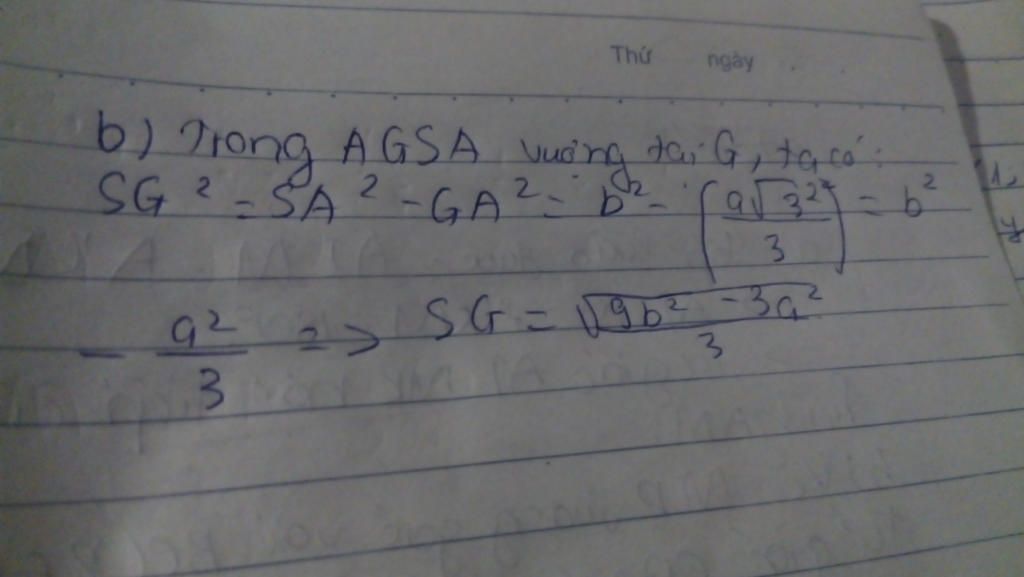 Thứ ngày
b) Trong AGSA vuông tại G, ta có:
SG² = SA² - GA² = b² - (a√3²/3) = b²
- a²/3 => SG = √9b² - 3a²/3